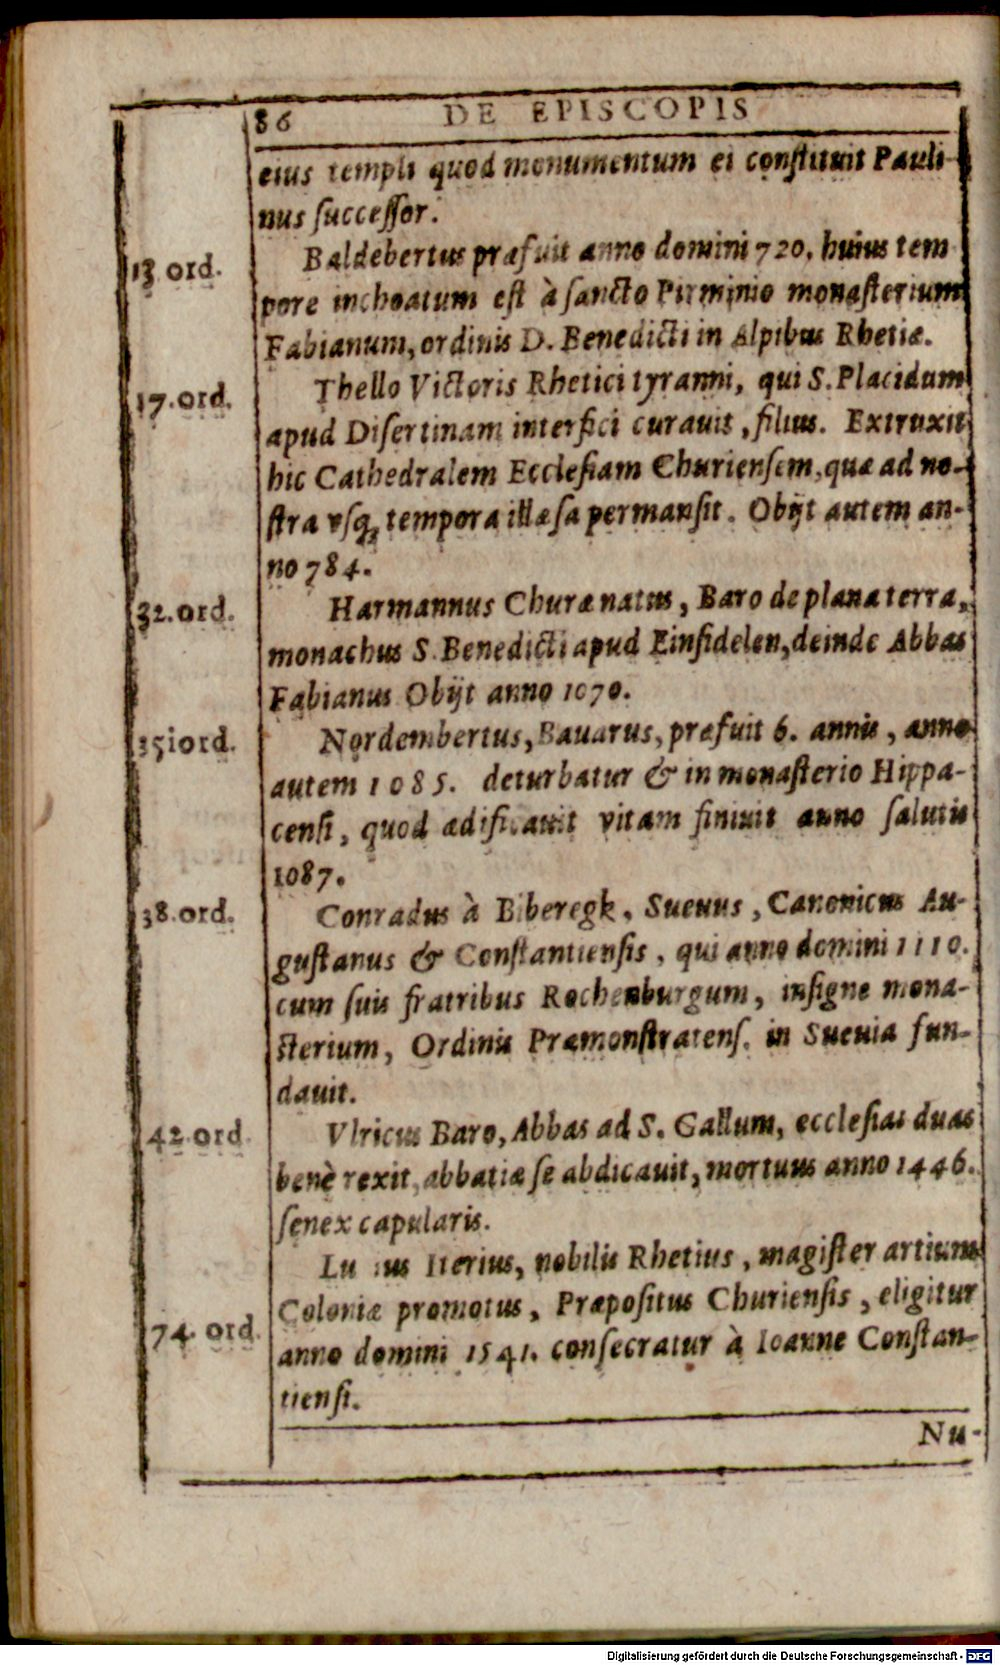 86 DE EPISCOPIS
eius templi quod monumentum ei constituit Pauli-
nus successor.
13 ord. Baldebertus præfuit anno domini 720. huius tem
pore inchoatum est à sancto Pirminio monasterium
Fabianum, ordinis D. Benedicti in Alpibus Rhetiæ.
17. ord. Thello Victoris Rhetici tyranni, qui S. Placidum
apud Disertinam interfici curauit, filius. Extruxit
hic Cathedralem Ecclesiam Churiensem, quæ ad no-
stra vsq; tempora illæsa permansit. Obijt autem an-
no 784.
32. ord. Harmannus Churæ natus, Baro de plana terra,
monachus S. Benedicti apud Einsidelen, deinde Abbas
Fabianus Obijt anno 1070.
35iord. Nordembertus, Bauarus, præfuit 6. annis, anno
autem 1085. deturbatur & in monasterio Hippa-
censi, quod ædificauit vitam finiuit anno salutis
1087.
38. ord. Conradus à Biberegk, Sueuus, Canonicus Au-
gustanus & Constantiensis, qui anno domini 1110.
cum suis fratribus Rochenburgum, insigne mona-
sterium, Ordinis Præmonstratens. in Sueuia fun-
dauit.
42. ord Vlricus Baro, Abbas ad S. Gallum, ecclesias duas
benè rexit, abbatiæ se abdicauit, mortuus anno 1446.
senex capularis.
Iterius, nobilis Rhetius, magister artium
74. ord. Coloniæ promotus, Præpositus Churiensis, eligitur
anno domini 1541. consecratur à Ioanne Constan-
tiensi.
Nu-
Digitalisierung gefördert durch die Deutsche Forschungsgemeinschaft - DFG